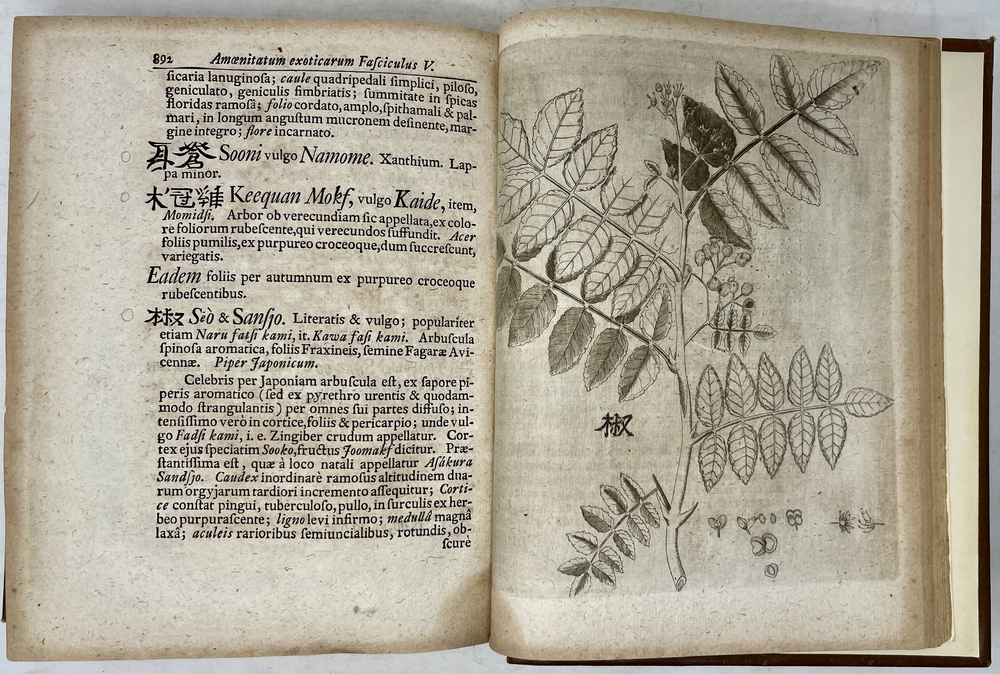 892 Amœnitatum exoticarum Fasciculus V.
ſicaria lanuginoſa; caule quadripedali ſimplici, piloſo,
geniculato, geniculis fimbriatis; ſummitate in ſpicas
floridas ramoſâ; folio cordato, amplo, ſpithamali & pal-
mari, in longum anguſtum mucronem deſinente, mar-
gine integro; flore incarnato.
耳蒼 Sooni vulgo Namome. Xanthium. Lap-
pa minor.
木冠雞 Keequan Mokf, vulgo Kaide, item,
Momidſi. Arbor ob verecundiam ſic appellata, ex colo-
re foliorum rubeſcente, qui verecundos ſuffundit. Acer
foliis pumilis, ex purpureo croceoque, dum ſuccreſcunt,
variegatis.
Eadem foliis per autumnum ex purpureo croceoque
rubeſcentibus.
椒 Seò & Sanſjo. Literatis & vulgo; populariter
etiam Naru fatſi kami, it. Kawa faſi kami. Arbuſcula
ſpinoſa aromatica, foliis Fraxineis, ſemine Fagaræ Avi-
cennæ. Piper Japonicum.
Celebris per Japoniam arbuſcula eſt, ex ſapore pi-
peris aromatico (ſed ex pyrethro urentis & quodam-
modo ſtrangulantis) per omnes ſui partes diffuſo; in-
tenſiſſimo verò in cortice, foliis & pericarpio; unde vul-
go Fadſi kami, i. e. Zingiber crudum appellatur. Cor-
tex ejus ſpeciatim Sooko, fructus Joomakf dicitur. Præ-
ſtantiſſima eſt, quæ à loco natali appellatur Aſákura
Sandſjo. Caudex inordinatè ramoſus altitudinem dua-
rum orgyjarum tardiori incremento aſſequitur; Corti-
ce conſtat pingui, tuberculoſo, pullo, in ſurculis ex her-
beo purpuraſcente; ligno levi infirmo; medullâ magnâ
laxâ; aculeis rarioribus ſemiuncialibus, rotundis, ob-
ſcurè
椒